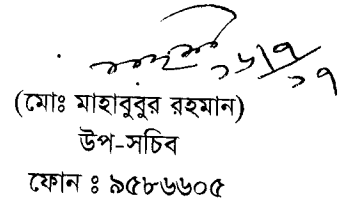 ১৬/৭/১৭
(মোঃ মাহাবুবুর রহমান)
উপ-সচিব
ফোন ঃ ৯৫৮৬৬০৫